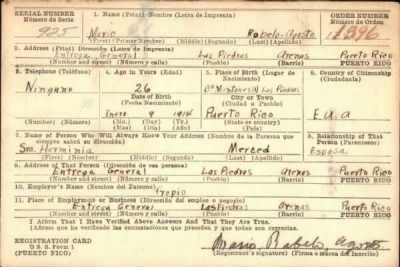 SERIAL NUMBER 1. Name (Print) Nombre (Letra de Imprenta) ORDER NUMBER
Número de Serie Número de Orden
925 Mario Rabelo-Agosto 1396
(First) (Primer Nombre) (Middle) (Segundo) (Last) (Apellido)
2. Address (Print) Dirección (Letra de Imprenta)
Entrega General Las Piedras Arenas Puerto Rico
(Number and street) (Número y calle) (Town) (Pueblo) (Barrio) (Barrio) (Country) (País)
3. Telephone (Teléfono) 4. Age in Years (Edad) 5. Place of Birth (Lugar de Nacimiento) 6. Country of Citizenship (Ciudadanía)
Ninguno 26 Bo Montones (H) Las Piedras
Date of Birth City or Town
(Fecha Nacimiento) (Ciudad o Pueblo)
Enero 9 1914 Puerto Rico E.U.A
(Mo.) (Mes) (Day) (Día) (Yr.) (Año) (State or country) (Estado o país)
7. Name of Person Who Will Always Know Your Address (Nombre de la Persona que siempre sabrá su dirección) 8. Relationship of That Person (Parentesco)
Sra. Herminia Merced Esposa
(First) (Nombre) (Middle) (Segundo) (Last) (Apellido)
9. Address of That Person (Dirección de esa persona)
Entrega General Las Piedras Arenas Puerto Rico
(Number and street) (Número y calle) (Town) (Pueblo) (Barrio) (Barrio) (Country) (País)
10. Employer's Name (Nombre del Patrono)
Propio
11. Place of Employment or Business (Dirección del empleo o negocio)
Entrega General Las Piedras Arenas Puerto Rico
(Number and street) (Número y calle) (Town) (Pueblo) (Barrio) (Barrio) (Country) (País)
I Affirm That I Have Verified Above Answers and That They are True.
(Afirmo que he verificado las contestaciones que preceden y que todas son ciertas).
REGISTRATION CARD
D. S. S. Form 1
(PUERTO RICO)
Mario Rabelo Agosto
(Registrant's signature) (Firma o marca del Inscrito)